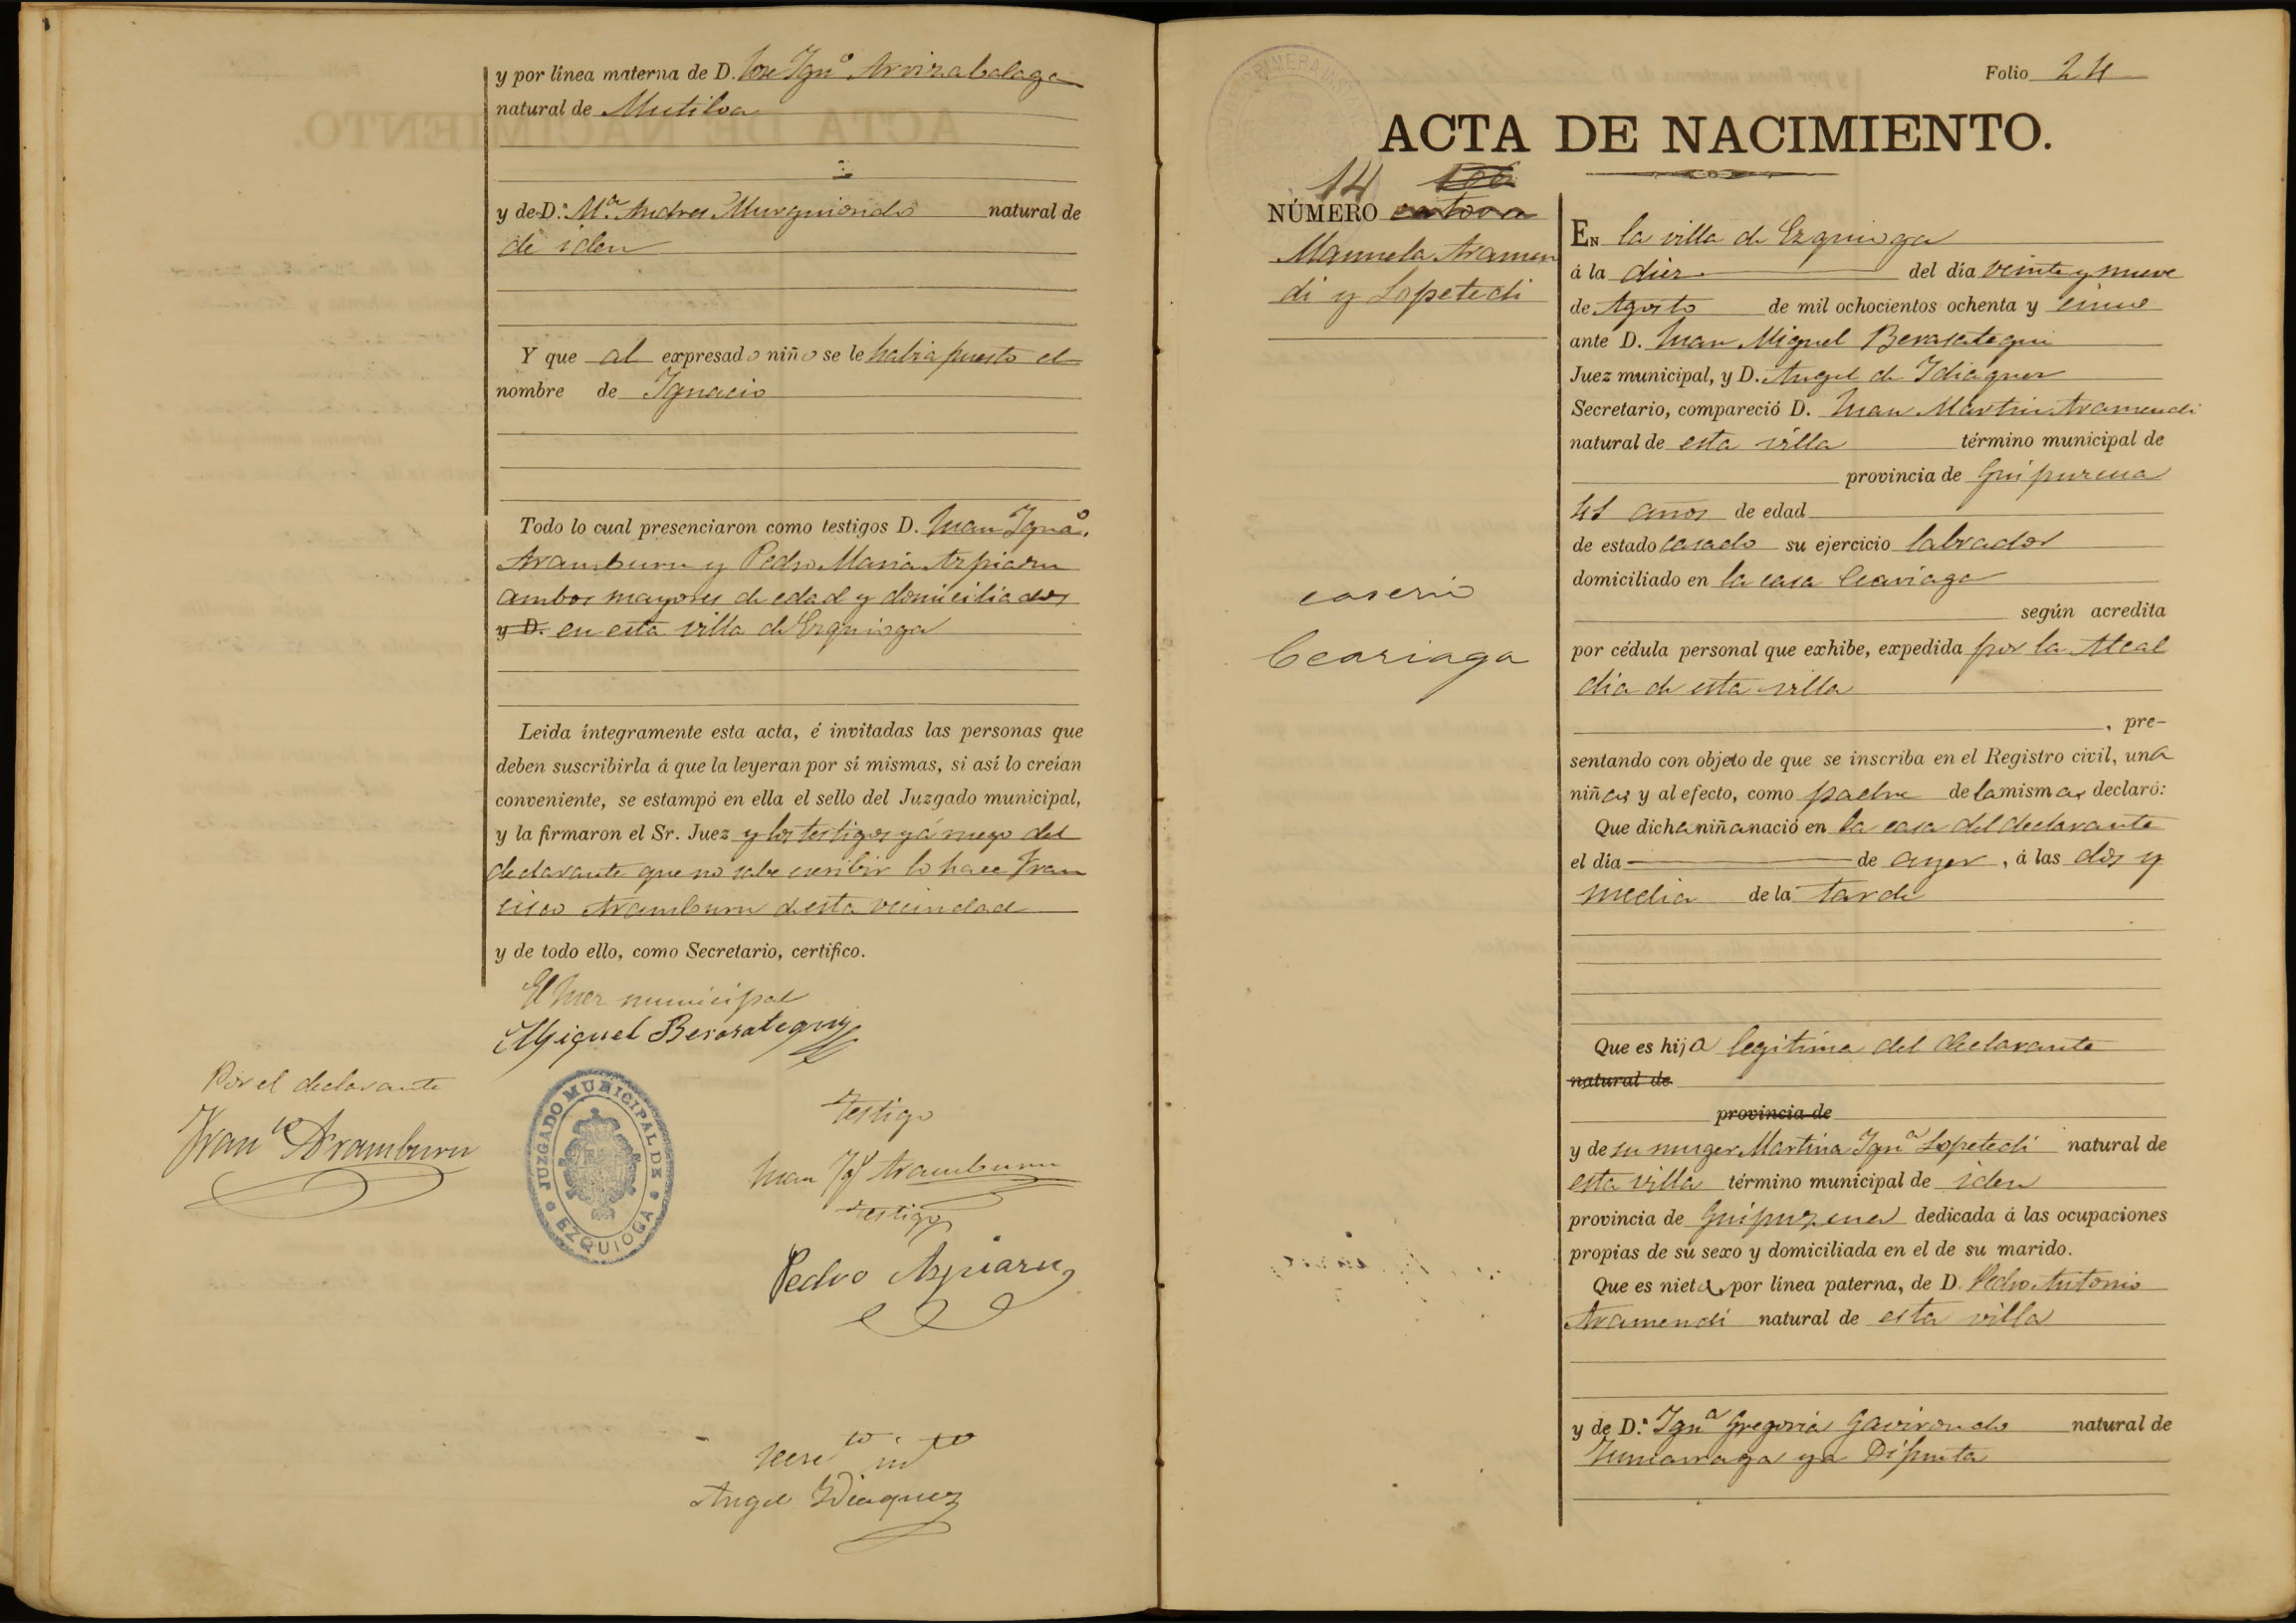 y por línea materna de D. José Ign.º Arrizabalaga
natural de Mutiloa
y de D.ª M.ª Andres Murguiondo natural de
de iden
Y que al expresado niño se le habia puesto el
nombre de Ignacio
Todo lo cual presenciaron como testigos D. Juan Igna.º
Aramburu y Pedro Maria Azpiazu
ambos mayores de edad y domiciliados
y D. en esta villa de Ezquioga
Leida íntegramente esta acta, é invitadas las personas que
deben suscribirla á que la leyeran por sí mismas, si así lo creían
conveniente, se estampó en ella el sello del Juzgado municipal,
y la firmaron el Sr. Juez y los testigos y á ruego del
declarante que no sabe escribir lo hace Fran
cisco Aramburu de esta vecindad
y de todo ello, como Secretario, certifico.
El Juez municipal
Miguel Berasategui
Por el declarante
Fran.co Aramburu
JUZGADO MUNICIPAL DE
EZQUIOGA
Testigo
Juan Ig.º Aramburu
Testigo
Pedro Azpiazu
Angel Idiaquez
Folio 24
ACTA DE NACIMIENTO.
14
NÚMERO catorce
Manuela Aramen
di y Lopetedi
caserio
Ceariaga
EN la villa de Ezquioga
á la diez del día veinte y nueve
de Agosto de mil ochocientos ochenta y cinco
ante D. Juan Miguel Berasategui
Juez municipal, y D. Angel de Idiaquez
Secretario, compareció D. Juan Martin Aramendi
natural de esta villa término municipal de
provincia de Guipuzcua
41 años de edad
de estado casado su ejercicio labrador
domiciliado en la casa Ceariaga
según acredita
por cédula personal que exhibe, expedida por la Alcal
dia de esta villa
, pre-
sentando con objeto de que se inscriba en el Registro civil, una
niña y al efecto, como padre de la misma, declaró:
Que dicha niña nació en la casa del declarante
el día de ayer, á las dos y
media de la tarde
Que es hija legitima del declarante
natural de
provincia de
y de su muger Martina Ign.ª Lopetedi natural de
esta villa término municipal de iden
provincia de Guipuzcua dedicada á las ocupaciones
propias de su sexo y domiciliada en el de su marido.
Que es nieta, por línea paterna, de D. Pedro Antonio
Aramendi natural de esta villa
y de D.ª Ign.ª Gregoria Gavirondo natural de
Zumarraga ya Difunta